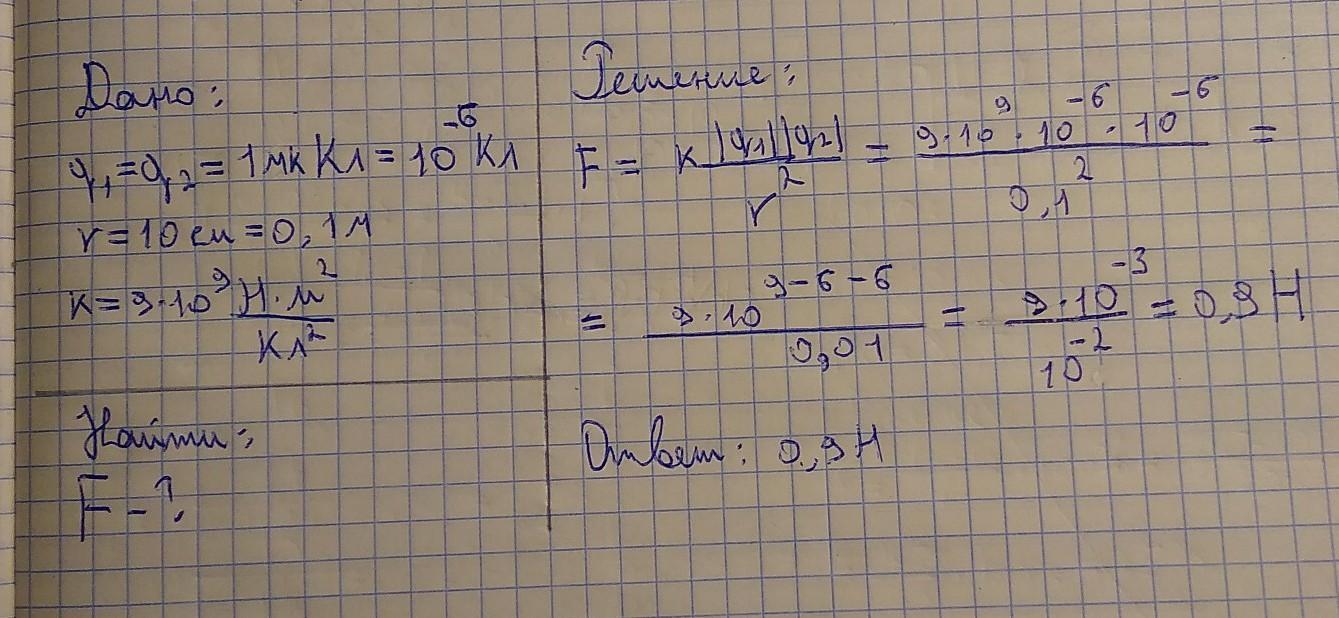 Дано:
q₁=q₂=1мкКл=10⁻⁶Кл
r=10см=0,1м
k=9·10⁹ Н·м²/Кл²
Найти:
F-?
Решение:
F = k|q₁||q₂|/r² = 9·10⁹·10⁻⁶·10⁻⁶/0,1² =
= 9·10⁹⁻⁶⁻⁶/0,01 = 9·10⁻³/10⁻² = 0,9Н
Ответ: 0,9Н